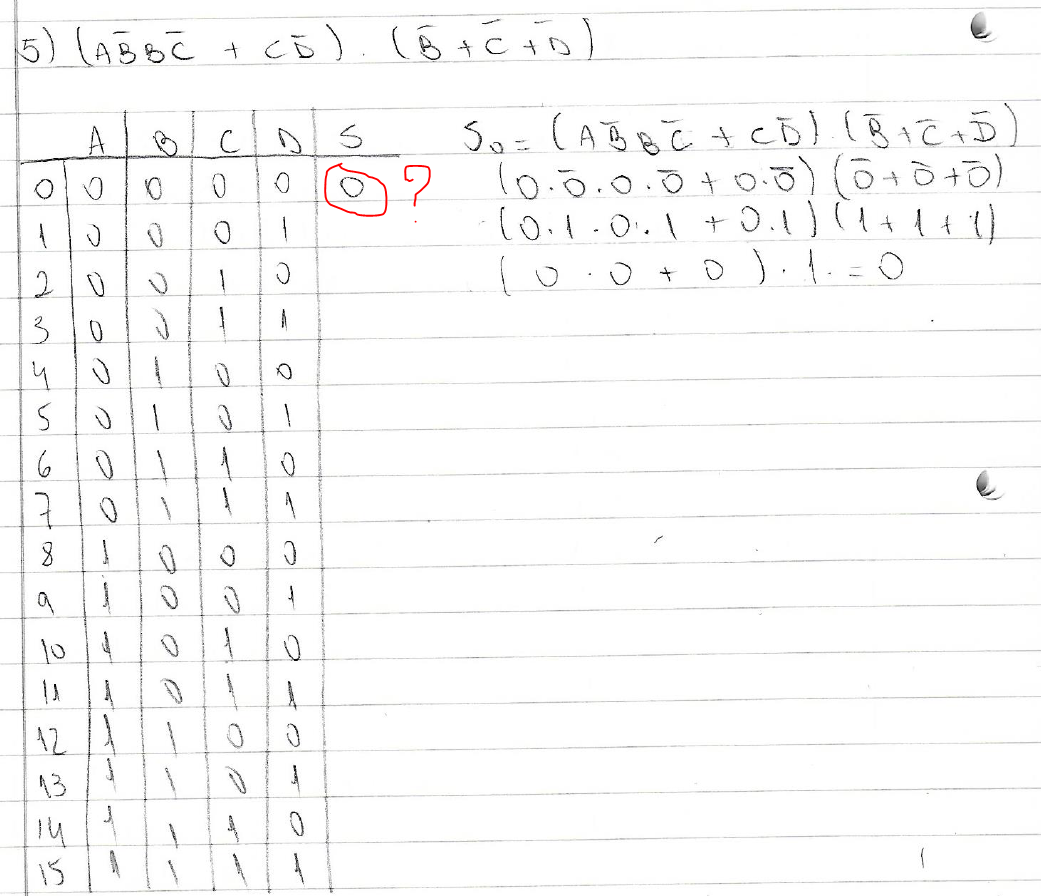 5) (AB̄BC̄ + CD̄) . (B̄ + C̄ + D̄)
A B C D S
0 0 0 0 0 0 ?
1 0 0 0 1
2 0 0 1 0
3 0 0 1 1
4 0 1 0 0
5 0 1 0 1
6 0 1 1 0
7 0 1 1 1
8 1 0 0 0
9 1 0 0 1
10 1 0 1 0
11 1 0 1 1
12 1 1 0 0
13 1 1 0 1
14 1 1 1 0
15 1 1 1 1
S₀ = (AB̄BC̄ + CD̄) . (B̄ + C̄ + D̄)
(0.0̄.0.0̄ + 0.0̄) (0̄ + 0̄ + 0̄)
(0.1.0.1 + 0.1) (1 + 1 + 1)
(0 . 0 + 0) . 1 . = 0